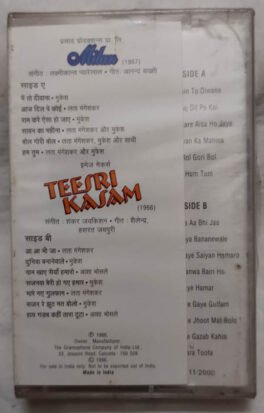 प्रसाद प्रोडक्शन्स प्रा. लि.
Milan
(1967)
संगीत : लक्ष्मीकान्त प्यारेलाल • गीत : आनन्द बख्शी
साइड ए
मैं तो दीवाना • मुकेश
आज दिल पे कोई • लता मंगेशकर
राम करे ऐसा हो जाए • मुकेश
सावन का महीना • लता मंगेशकर और मुकेश
बोल गोरी बोल • लता मंगेशकर, मुकेश और साथी
हम तुम • लता मंगेशकर और मुकेश
इमेज मेकर्स
TEESRI
KASAM
(1966)
संगीत : शंकर जयकिशन • गीत : शैलेन्द्र,
हसरत जयपुरी
साइड बी
आ आ भी जा • लता मंगेशकर
दुनिया बनानेवाले • मुकेश
पान खाए सैंया हमारो • आशा भोसले
सजनवा बैरी हो गए हमार • मुकेश
मारे गए गुलफाम • लता मंगेशकर
सजन रे झूठ मत बोलो • मुकेश
हाय गजब कहीं तारा टूटा • आशा भोसले
℗ 1986,
Owner, Manufacturer:
The Gramophone Company of India Ltd.,
33, Jessore Road, Calcutta - 700 028
© 1986,
For sale in India only. Not to be exported out of India.
Made in India
SIDE A
in To Diwana
Dil Pe Koi
are Aisa Ho Jaye
an Ka Mahina
Gori Bol
Hum Tum
SIDE B
Aa Bhi Jaa
ya Bananewale
aye Saiyan Hamaro
nwa Bairi Ho
aye Hamar
e Gaye Gulfam
e Jhoot Mat Bolo
e Gazab Kahin
ara Toota
11/2000